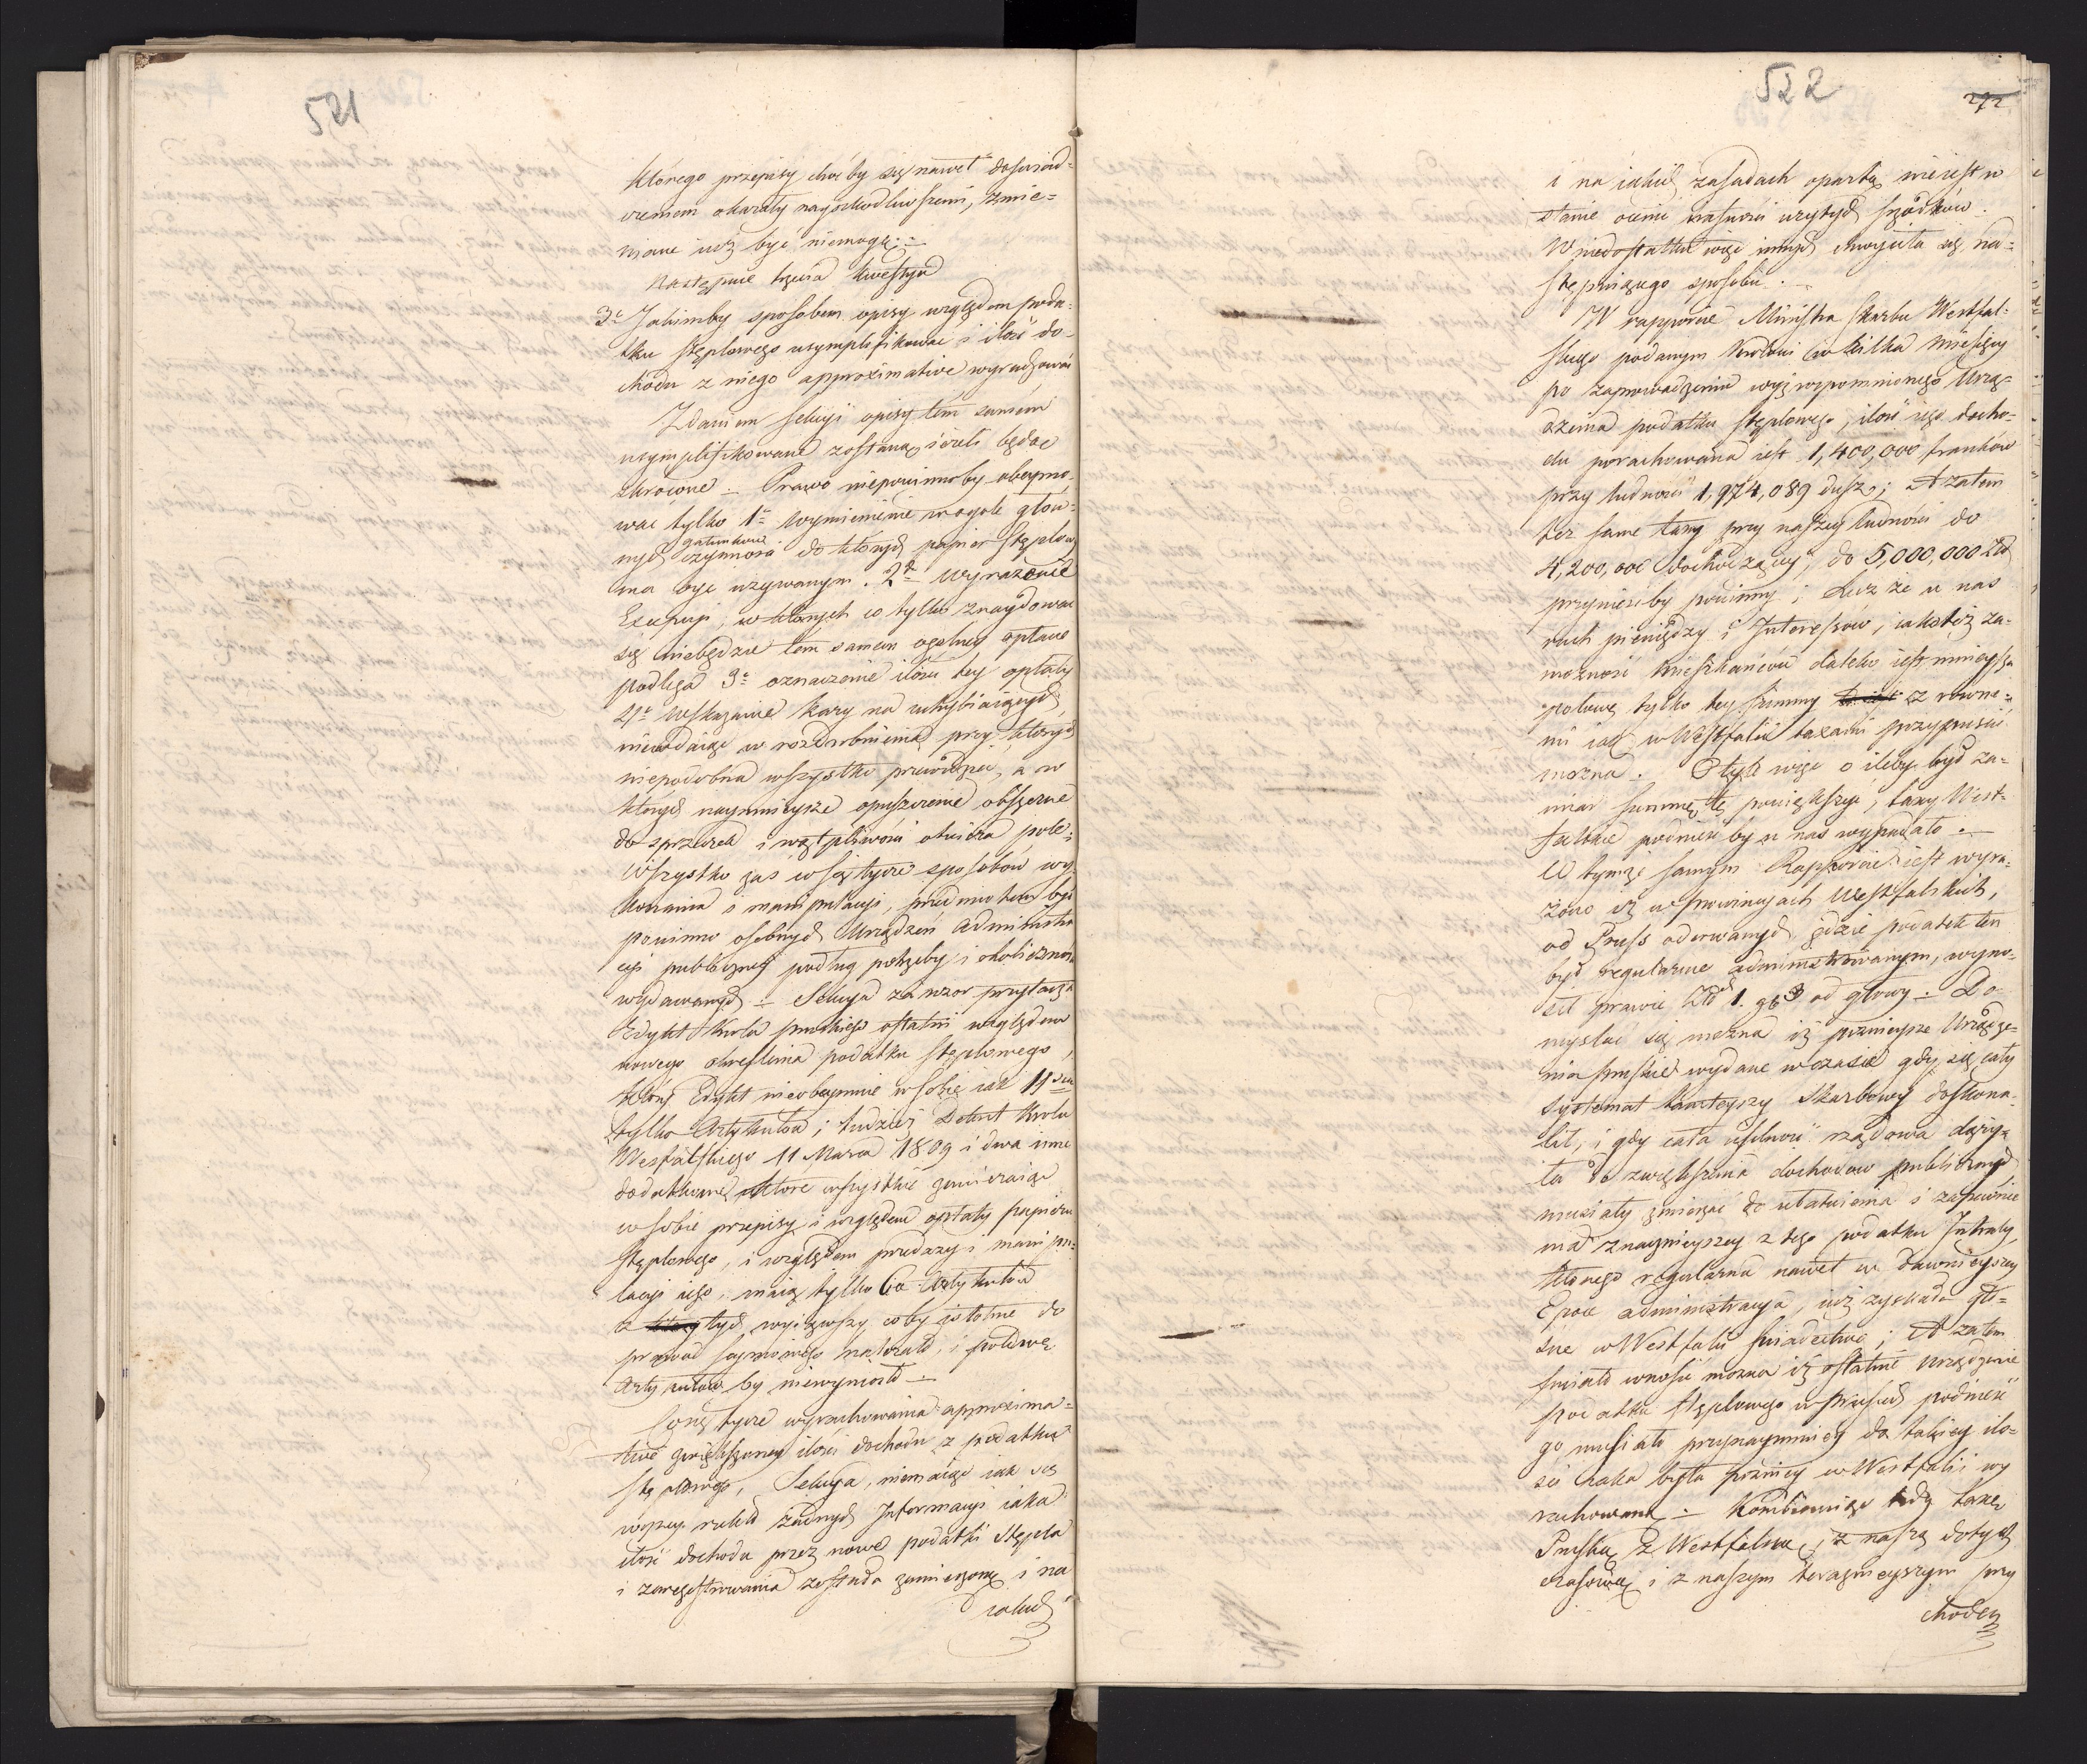 521
którego przepisy choć by się nawet doświad=
czeniem okazały nayszkodliwszemi, zmie=
niane iuż być niemogą:—
Następuie trzecia kwestya
3e Jakimby sposobem opisy względem poda-
tku stęplowego usymplifikować i ilość do-
chodu z niego approximative wyrachować
Zdaniem sekcyi opisy tém samem
usymplifikowane zostaną ieżeli będą
skrócone — Prawo niepowinnoby obeymo-
wac tylko 1e wymienienie wogóle głow-
nych gatunkowie czynności do których papier stęplowy
ma być używanym. 2e wyrażenie
Excepcyi, w których co tylko znaydować
się niebędzie tém samem ogólney opłacie
podlega 3e oznaczenie ilości tey opłaty
4e wskazanie kary na uchybiaiących,
niewdaiąc w rozdrobnienia przy których
niepodobna wszystko przewidzieć, a w
których naymnieysze opuszczenie obszerne
do sprzeczek i wątpliwości otwiera pole:
Wszystko zaś co się tycze sposobów wy-
konania i manipulacyi, przedmiotem być
powinno osobnych Urządzeń administra
cyi publiczney podług potrzeby i okoliczności
wydawanych — Sekcya za wzor przytacza
Edykt Krola pruskiego ostatni względem
nowego określenia podatku stęplowego,
który Edykt nieobeymuie w sobie iak 11
tylko Artykułow; tudzież Dekret Krola
Westfalskiego 11 Marca 1809 i dwa inne
dodatkowe, które wszystkie zawieraiąc
w sobie przepisy i względem opłaty papieru
stęplowego, i względem przedaży i manipu-
lacyi iego, maią tylko 60 Artykułów
z tych, wyiąwszy coby istotnie do
prawa seymowego należało, i połowę
Artykułów by niewyniosło —
Co się tycze wyrachowania approxima-
tive zwiększoney ilości dochodu z podatku
stęplowego, Sekcya, niemaiąc iak się
wyżey rzekło żadnych Informacyi iaka
ilość dochodu przez nowe podatki Stępla
i zaregestrowania została zamierzoną i na
iakich
522
272
i na iakich zasadach opartą, nie iest w
stanie ocenić ważności użytych śrzodków.
W niedostatku więc innych chwyciła się na=
stępuiącego sposobu. —
W rapporcie Ministra Skarbu Westfal=
skiego podanym Królowi w kilka miesięcy
po zaprowadzeniu wyż wspomnionego Urzą=
dzenia podatku stęplowego, ilość iego docho=
du porachowana iest 1,400,000 franków
przy ludności 1,974,089 dusz; A zatem
też same taxy przy naszey ludności do
4,200,000 dochodzącey, do 5,000,000 Złp
przynieśćby powinny; Lecz że u nas
ruch pieniędzy i Interessów, iakotéż za-
możność mieszkańców daleko iest mnieysza
połowę tylko tey summy z równe=
mi iak w Westfalii taxami przypuścić
można. O tyle więc o ileby był za-
miar summę tę powiększyć, taxy West-
falskie podnieść by u nas wypadało. —
W tymże samym Rapporcie iest wyra-
żono iż w prowincyach Westfalskich,
od Pruss oderwanych gdzie podatek ten
był regularnie administrowanym, wyno-
sił prawie Złp 1. g 3 od głowy — Do-
myslać się można iż poznieysze Urządze=
nia pruskie wydane w czasie gdy się cały
Systemat tamteyszy Skarbowy doskona-
lił, i gdy cała usilność rządowa dąży=
ła do zwiększenia dochodow publicznych
musiały zmierzać do ułatwienia i zapewnie
nia znacznieyszey z tego podatku Intraty,
którego regularna nawet w dawnieyszey
Epoce administracya, iuż zyskała gło=
śne w Westfalii świadectwo; A zatem
śmiało wnosić można iż ostatnie urządzenie
podatku stęplowego w Prusiech podnieść
go musiało przynaymniey do takiey ilo=
ści iaka była pozniey w Westfalii wy
rachowana — Kombinuiąc tedy taxę
Pruską z Westfalską, i z naszą dotych
czasową i z naszym teraznieyszym przy
chodem